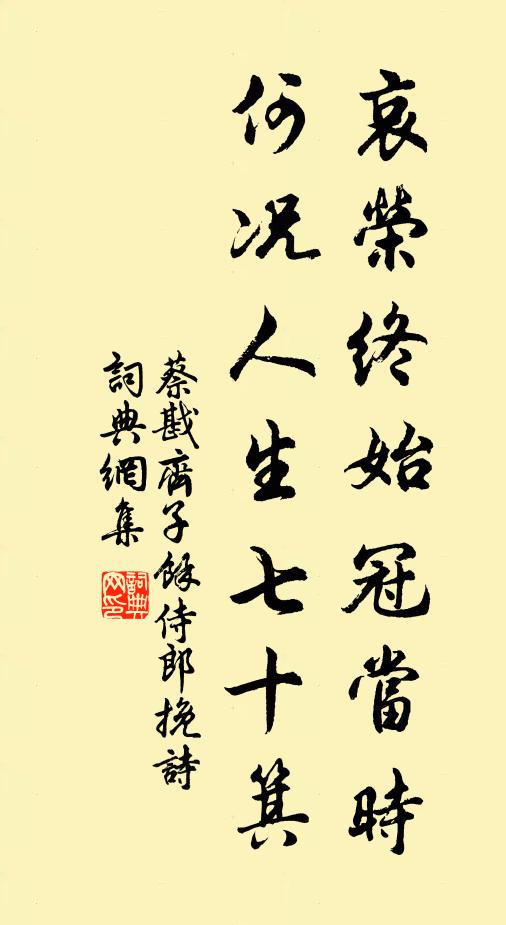 哀榮終始冠當時
何况人生七十箕
蔡戡齊子餘侍郎挽詩
詞典網集
詞典网印